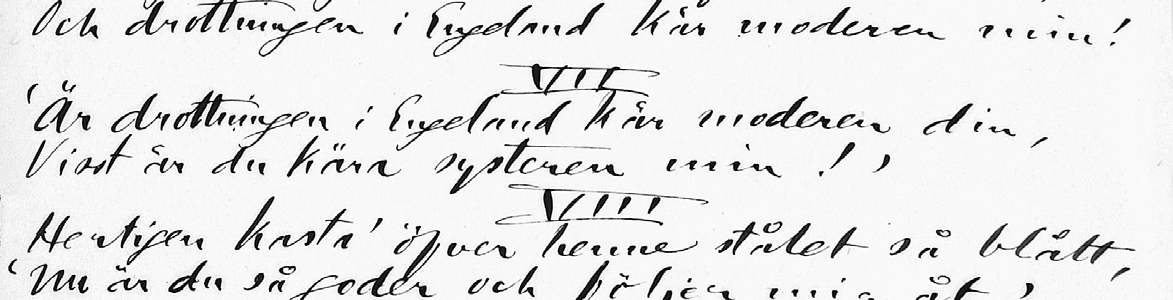 Och drottningen i Engeland kär moderen min!
VII
'Är drottningen i Engeland kär moderen din,
Visst är du kära systeren min!'
VIII
Hertigen kasta' öfver henne stålet så blått,
'Nu är du så goder och följer mig åt!